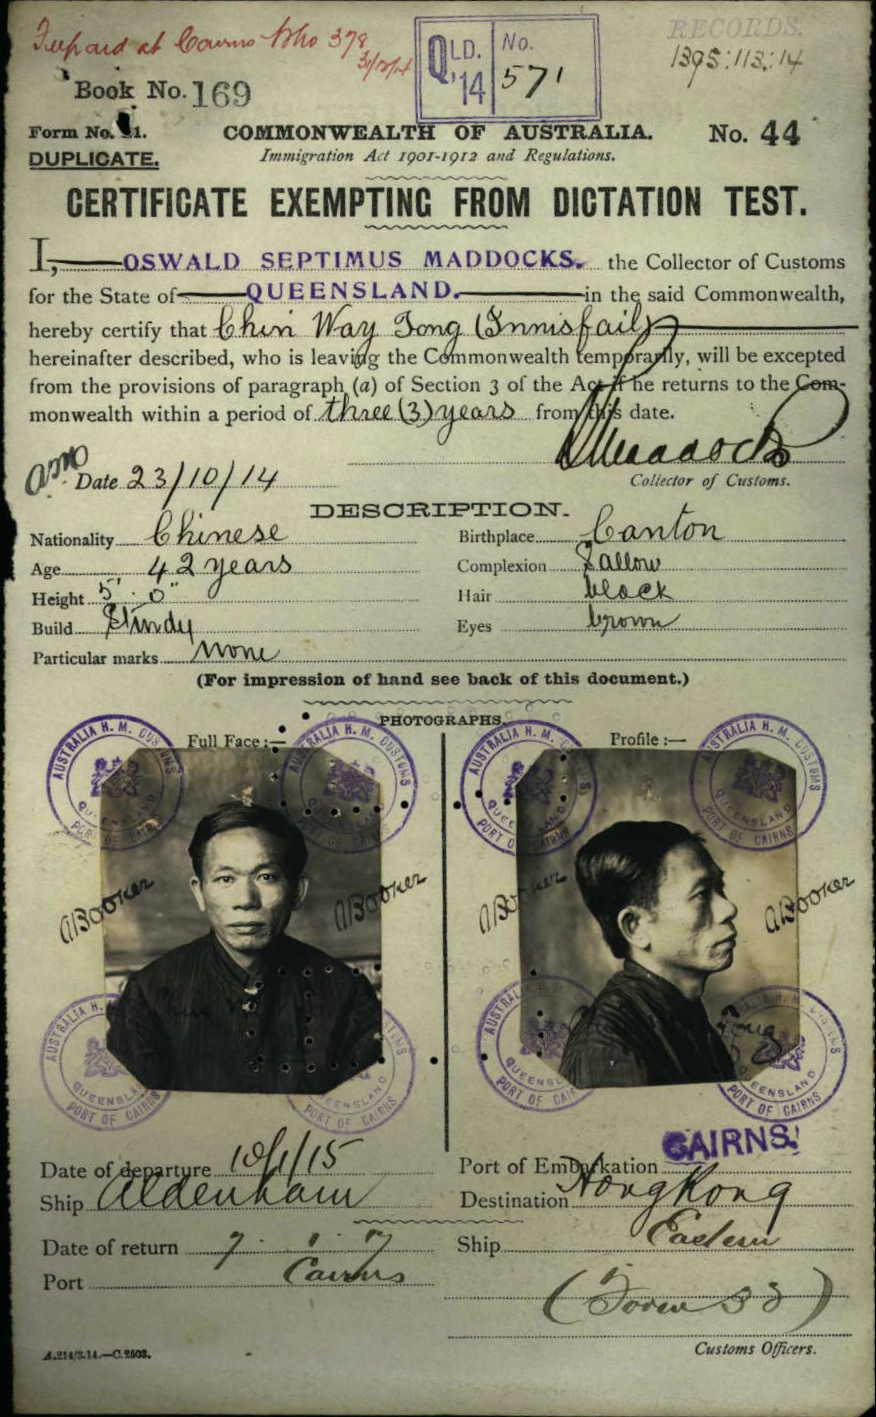 at Cairns
RECORDS.
QLD. No.
'14 571
Book No. 169
Form No. 21.
COMMONWEALTH OF AUSTRALIA.
No. 44
DUPLICATE.
Immigration Act 1901-1912 and Regulations.
CERTIFICATE EXEMPTING FROM DICTATION TEST.
I, OSWALD SEPTIMUS MADDOCKS. the Collector of Customs
for the State of QUEENSLAND. in the said Commonwealth,
hereby certify that Chin Way Tong (Innisfail)
hereinafter described, who is leaving the Commonwealth temporarily, will be excepted
from the provisions of paragraph (a) of Section 3 of the Act if he returns to the Com-
monwealth within a period of three (3) years from this date.
Maddocks
Date 23/10/14
Collector of Customs.
DESCRIPTION.
Nationality Chinese
Birthplace Canton
Age 42 years
Complexion Sallow
Height 5' 0"
Hair black
Build Sturdy
Eyes brown
Particular marks None
(For impression of hand see back of this document.)
PHOTOGRAPHS.
Full Face :—
Profile :—
AUSTRALIA H. M. CUSTOMS
QUEENSLAND
PORT OF CAIRNS
ABooker
ABooker
ABooker
ABooker
Tong
Date of departure 10/1/15
Port of Embarkation CAIRNS.
Ship Aldenham
Destination Hong Kong
Date of return 7. 1. 17
Ship Eastern
Port Cairns
Customs Officers.
A.214/3.14.—C.2503.